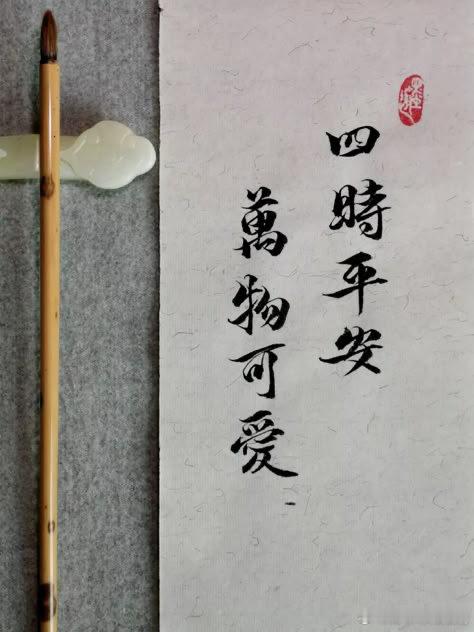 四時平安
萬物可愛